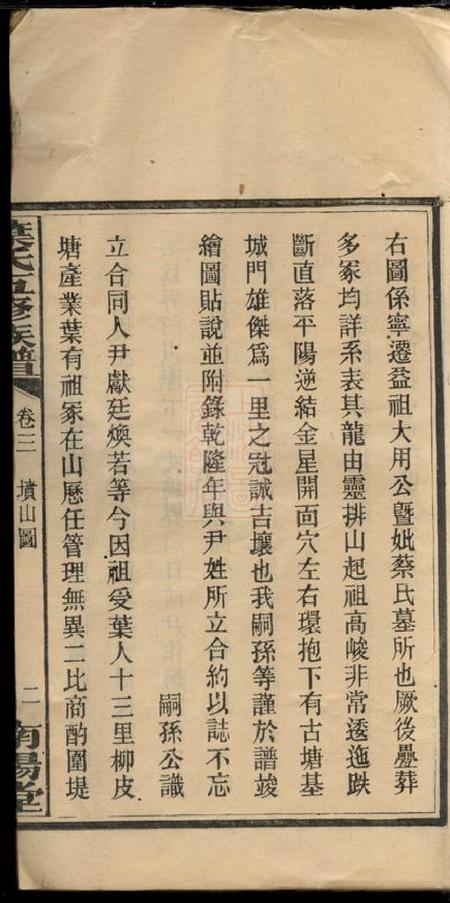 右圖係寧遷益祖大用公暨妣蔡氏墓所也厥後疊葬
多冢均詳系表其龍由靈排山起祖高峻非常透迤跌
斷直落平陽逆結金星開面穴左右環抱下有古塘基
城門雄傑爲一里之冠誠吉壤也我嗣孫等謹於譜竣
繪圖貼說並附錄乾隆年與尹姓所立合約以誌不忘
嗣孫公識
立合同人尹獻廷煥若等今因祖受葉人十三里柳皮
塘產業葉有祖冢在山歷任管理無異二比商酌圍堤
葉氏五修族譜
卷三
墳山圖
二
南陽堂